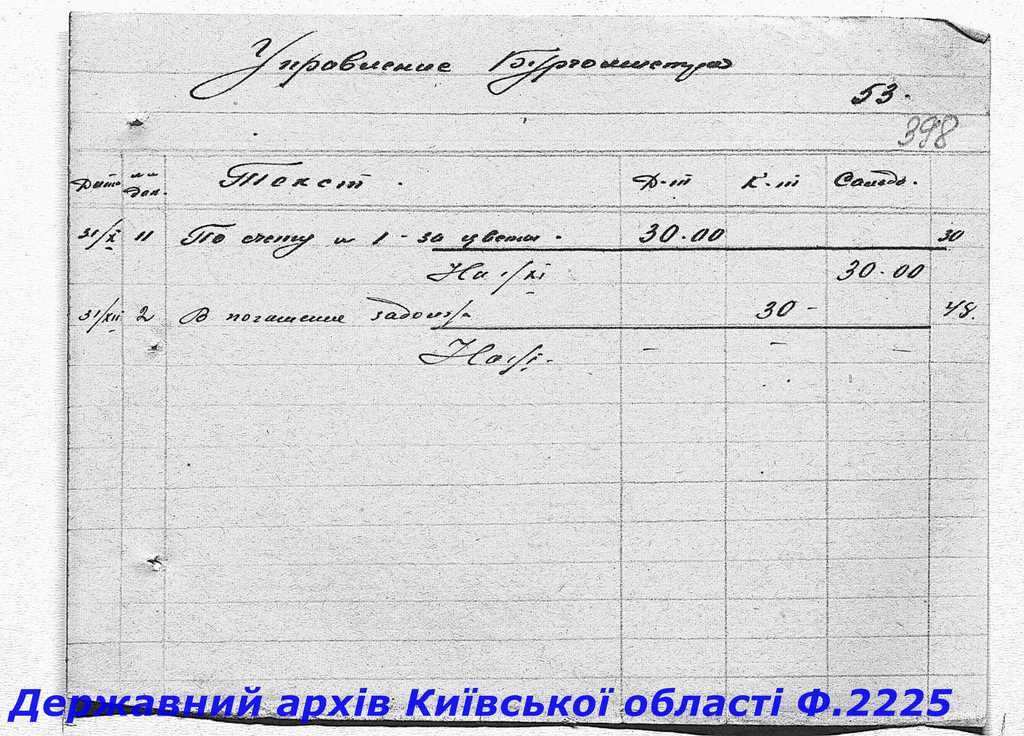 Управление Бургомистра
53.
398
Дата №№ док. Текст. Д-т К-т Сальдо.
31/X 11 По счету № 1 - за цветы. 30.00 30
На 1/XI 30.00
31/XII 2 В погашение задолж. 30 - 48.
На 1/I - - - -
Державний архів Київської області Ф.2225